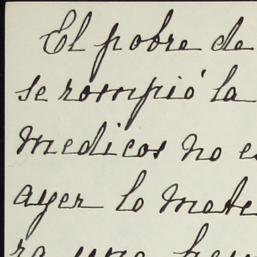 El pobre de
se rompió la
medicos no e
ayer lo mate
ra una he